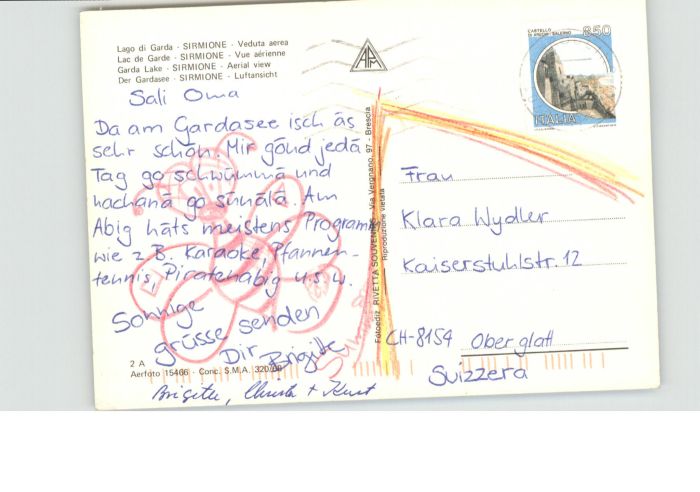 Lago di Garda - SIRMIONE - Veduta aerea
Lac de Garde - SIRMIONE - Vue aérienne
Garda Lake - SIRMIONE - Aerial view
Der Gardasee - SIRMIONE - Luftansicht
Sali Oma
Da am Gardasee isch äs
sehr schön. Mir gönd jedä
Tag go schwümmä und
nachanä go sünälä. Am
Abig häts meistens Programm
wie z.B. Karaoke, Pfannen-
tennis, Piratenabig u.s.w.
Sonnige
grüsse senden
Dir Brigitte
2 A
Aerfoto 15466 - Conc. S.M.A. 320/68
Brigitte, Christa + Kurt
Fotoediz. RIVETTA SOUVENIRS - Via Vergnano, 97 - Brescia
Riproduzione vietata
CASTELLO
DI ARECHI - SALERNO
850
ITALIA
Frau
Klara Wydler
Kaiserstuhlstr. 12
CH-8154 Oberglatt
Suizzera